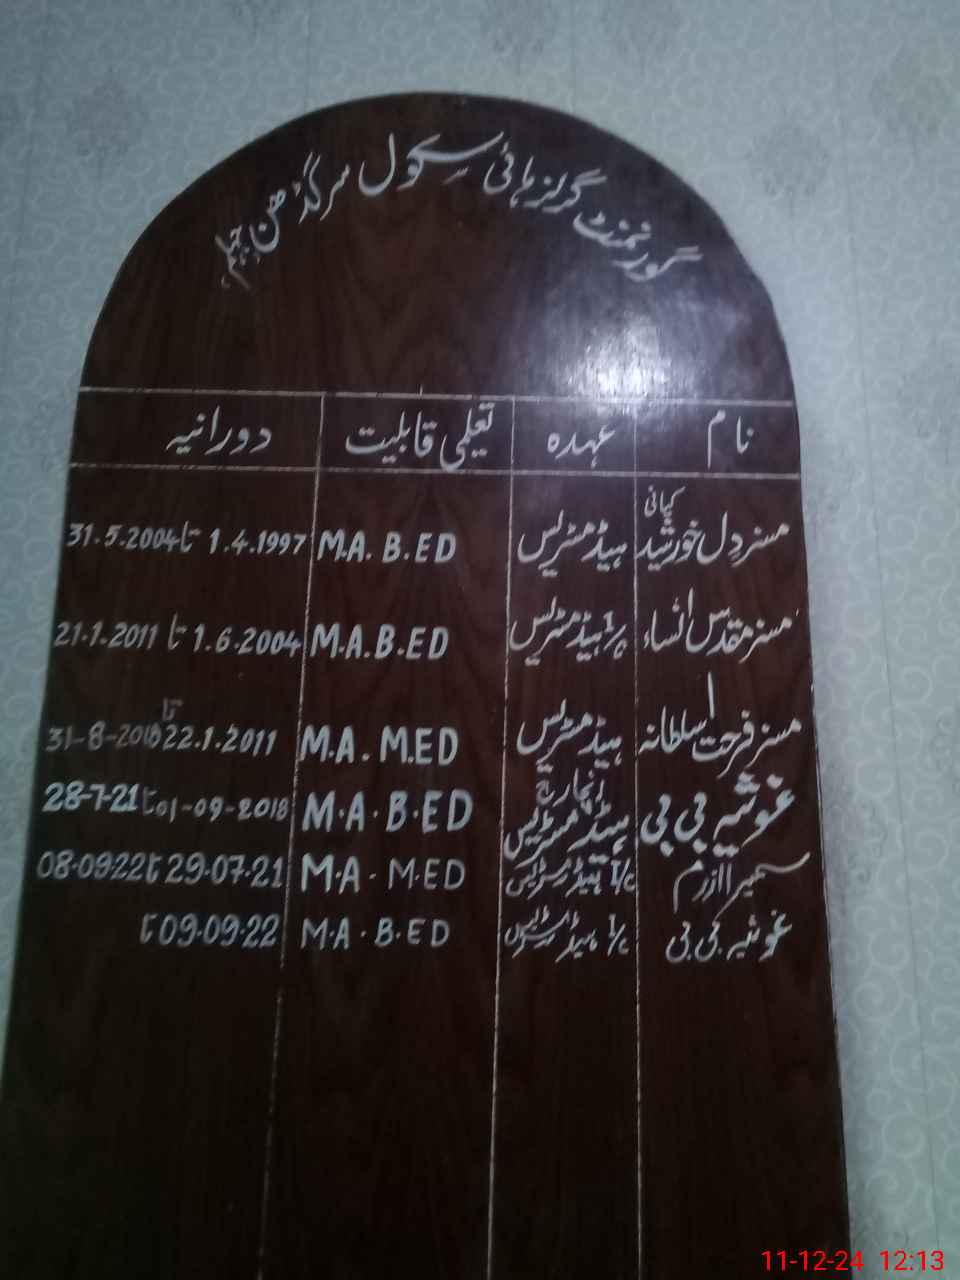 گورنمنٹ گرلز ہائی سکول سرگڈھن جہلم
نام عہدہ تعلیمی قابلیت دورانیہ
کیانی
مسز دل خورشید ہیڈمسٹریس M.A. B.ED 1.4.1997 تا 31.5.2004
مسز مقدس النساء I/c ہیڈمسٹریس M.A.B.ED 1.6.2004 تا 21.1.2011
مسز فرحت سلطانہ ہیڈمسٹریس M.A. M.ED 22.1.2011 تا 31-8-2018
غوشیہ بی بی انچارج ہیڈمسٹریس M.A.B.ED 01-09-2018 تا 28-7-21
سمیرا ارم I/c ہیڈمسٹریس M.A. M.ED 29.07.21 تا 08.09.22
غوشیہ بی بی I/c ہیڈمسٹریس M.A. B.ED 09.09.22 تا
11-12-24 12:13